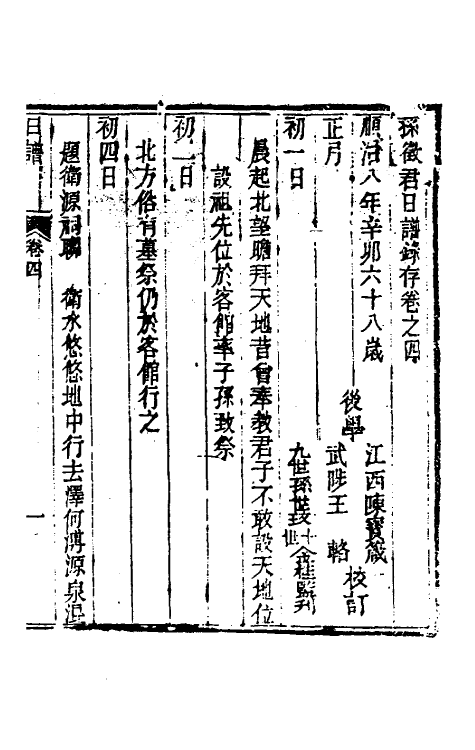 孫徵君日譜錄存卷之四
順治八年辛卯六十八歲
江西陳寶箴
後學
武陟王輅
校訂
正月
九世孫世玟 十世 金桂監刋
初一日
晨起北望瞻拜天地昔曾奉教君子不敢設天地位
設祖先位於客館率子孫致祭
初二日
北方俗有墓祭仍於客館行之
初四日
題衛源祠聯 衛水悠悠地中行去澤何溥源泉混
日譜 卷四 一